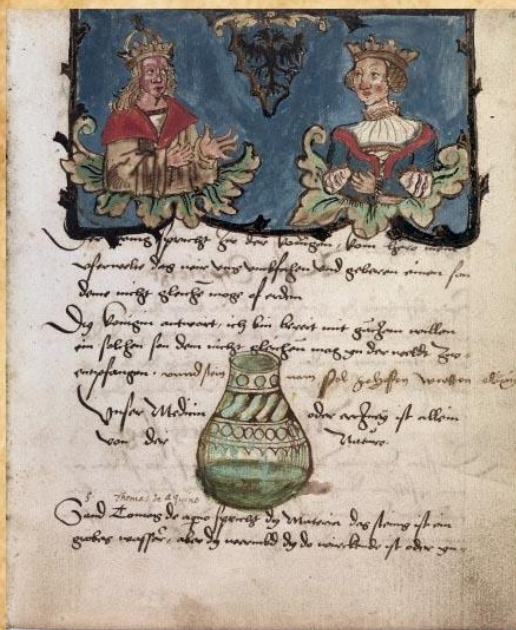 Der konig spricht zu der konigin, kom here mein
das wir uns umbfahen und geberen einen son
deme nicht gleiche moge of erdem
Dy konigin antwort, ich bin bereit mit willen
ein solchen son dem nicht gleichen mag yn der weldt zu
entpfangen, und sein
Unser Medicin oder ercznei ist allein
von der Natur.
5 Thomas de Aquino
Sand Tomas de aqno spricht dy Materia des steins ist ein
grobes wasser, aber dy do wirckende ist oder